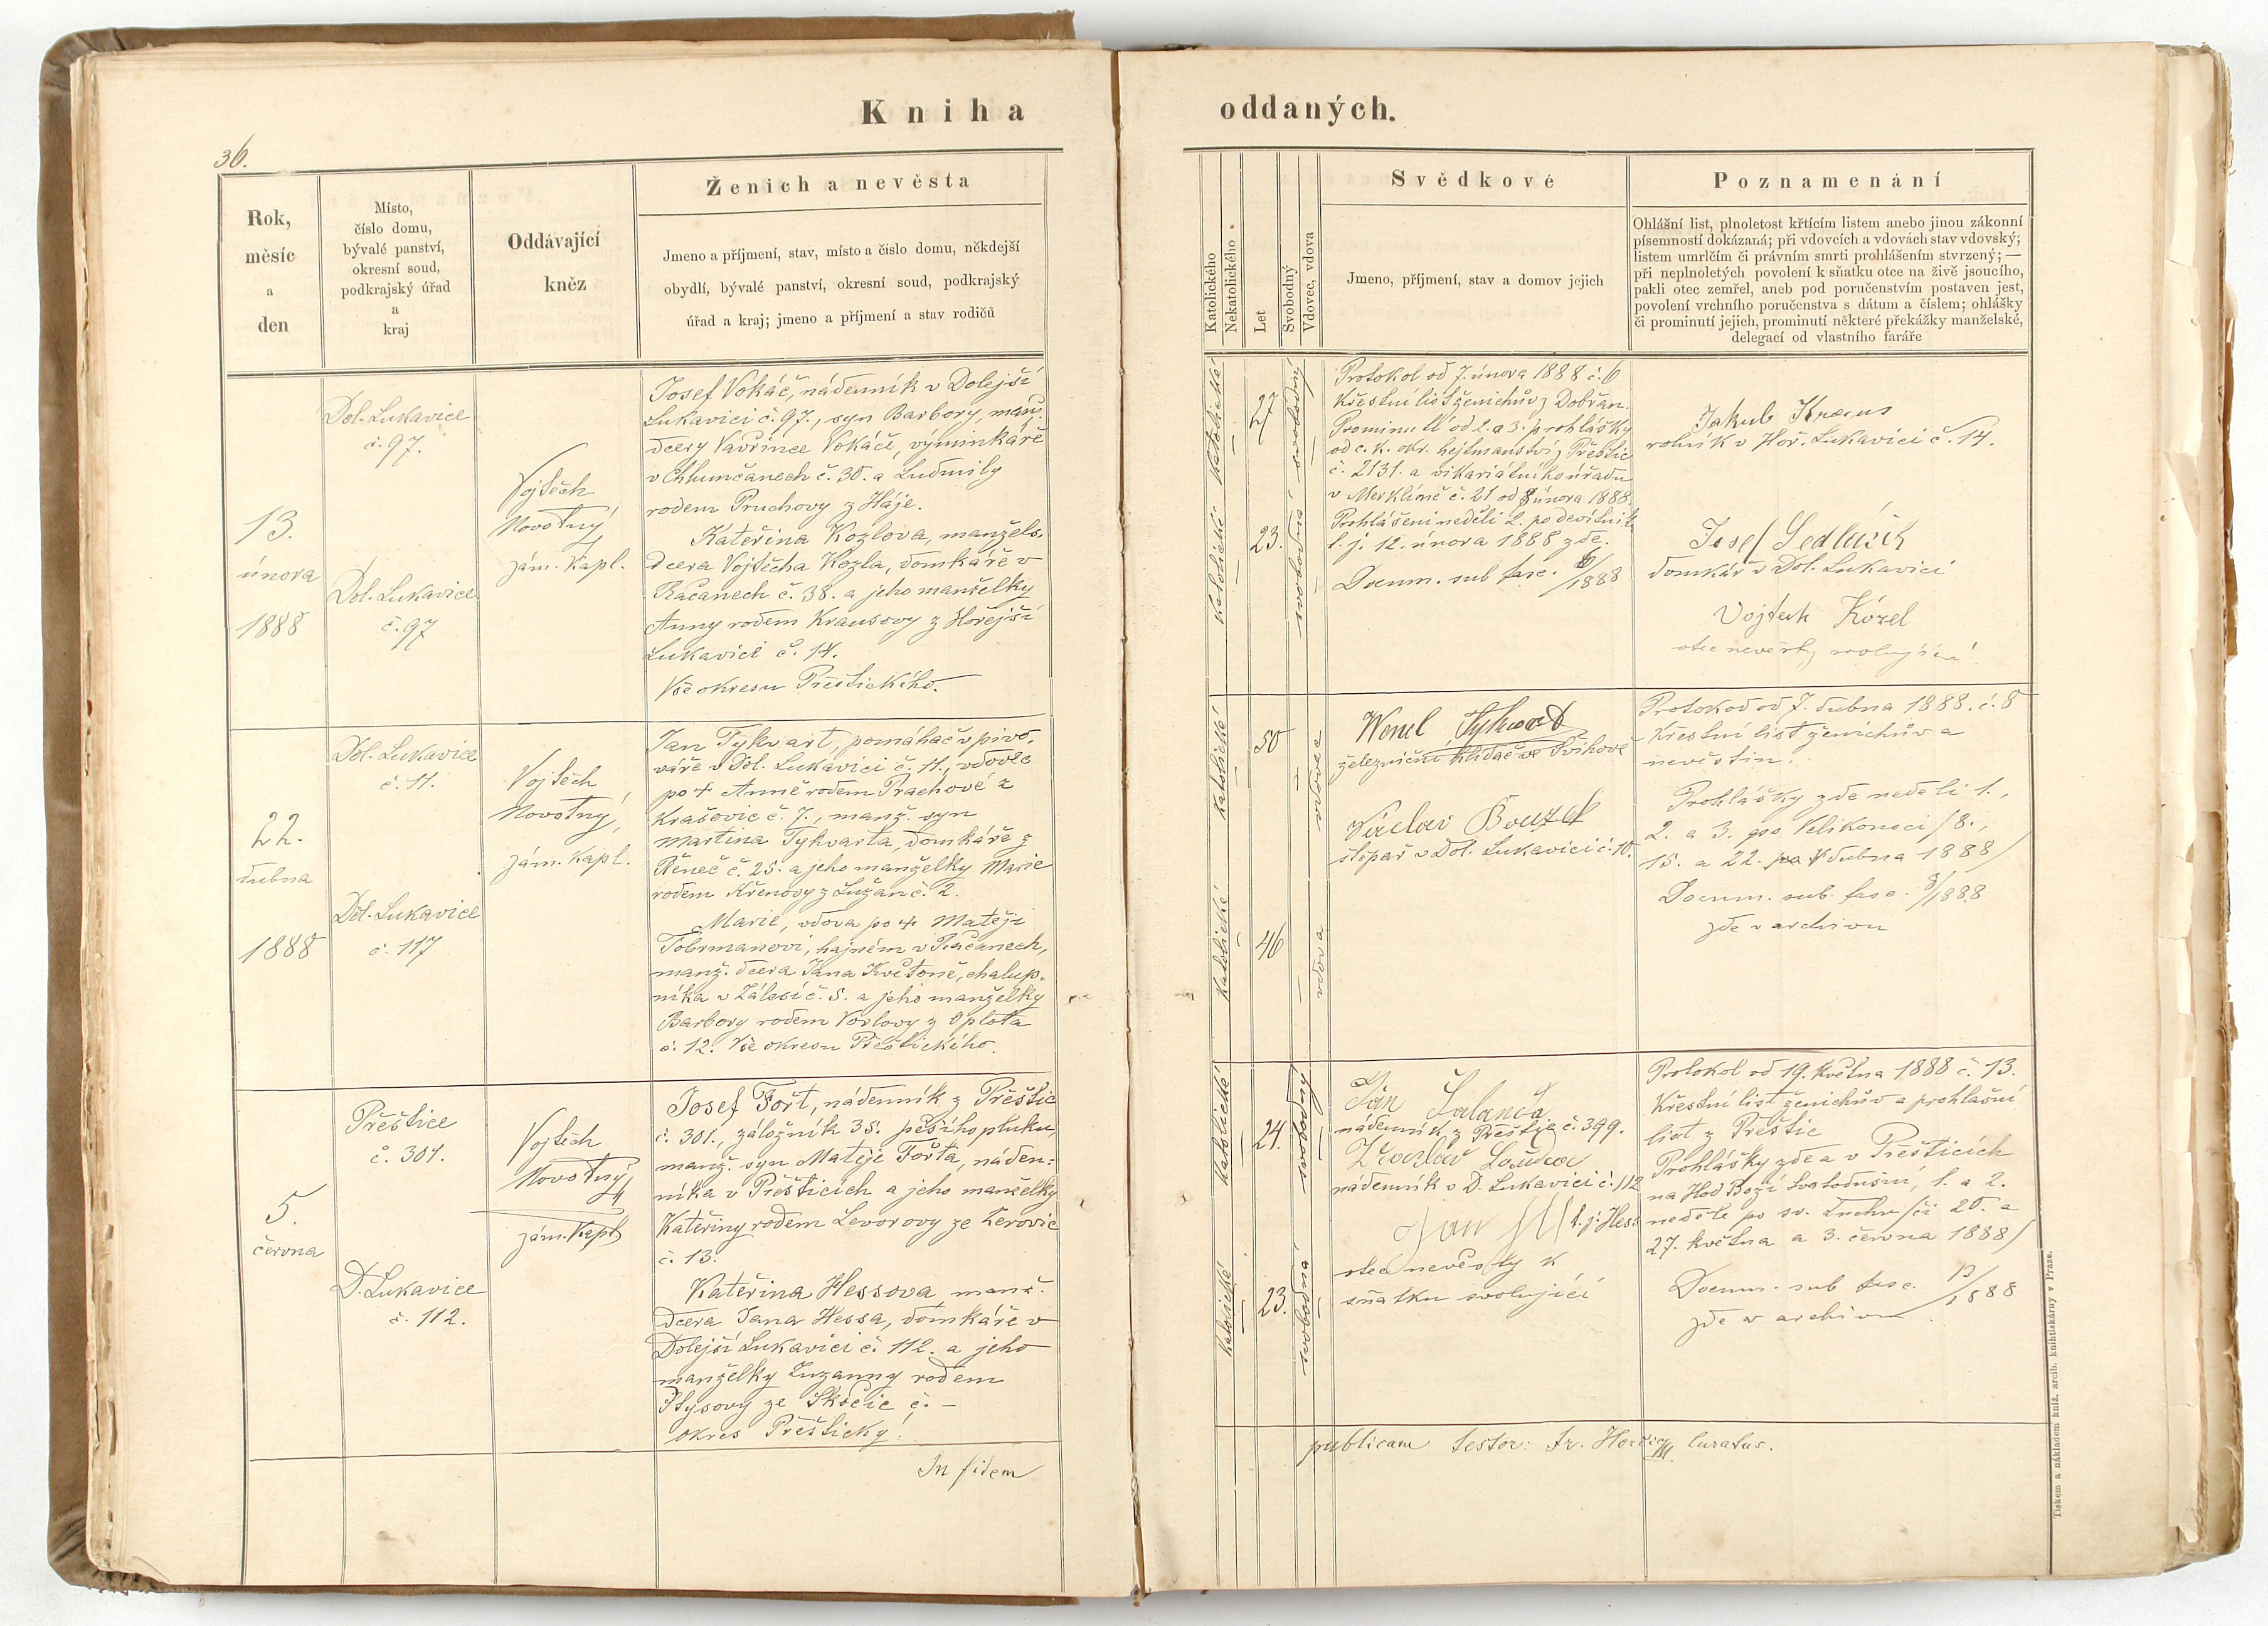 Kniha
oddaných.
36.
Rok,
měsíc
a
den
Místo,
číslo domu,
bývalé panství,
okresní soud,
podkrajský úřad
a
kraj
Oddávající
kněz
Ženich a nevěsta
Jmeno a příjmení, stav, místo a číslo domu, někdejší
obydlí, bývalé panství, okresní soud, podkrajský
úřad a kraj; jmeno a příjmení a stav rodičů
13.
února
1888
Dol. Lukavice
č. 97.
Dol. Lukavice
č. 97
Vojtěch
Novotný
zám. kapl.
Josef Vokáč, nádenník v Dolejší
Lukavici č. 97., syn Barbory, manž.
dcery Vavřince Vokáče, výminkáře
v Chlumčanech č. 30. a Ludmily
rodem Pruchovy z Háje.
Kateřina Kozlova, manžels.
dcera Vojtěcha Kozla, domkáře v
Řáčanech č. 38. a jeho manželky
Anny rodem Krausovy z Hořejší
Lukavici č. 14.
Vše okresu Přeštického.
22.
dubna
1888
Dol. Lukavice
č. 11.
Dol. Lukavice
č. 117
Vojtěch
Novotný,
zám. kapl.
Jan Tykvart, pomáhač v pivo-
váře v Dol. Lukavici č. 11., vdovec
po + Anně rodem Prachové z
Krašovic č. 7., manž. syn
Martina Tykvarta, domkáře z
č. 25. a jeho manželky Marie
rodem Křenovy z Lužan č. 2.
Marie, vdova po + Matěji
Tobrmanovi, hajném v Řáčanech,
manž. dcera Jana Květoně, chalup-
níka v Zálesí č. 5. a jeho manželky
Barbory rodem Vorlovy z Oplota
č. 12. Vše okresu Přeštického.
5.
června
Přeštice
č. 301.
D. Lukavice
č. 112.
Vojtěch
Novotný
zám. kapl
Josef Fořt, nádenník z Přeštic
č. 301., záložník 35. pěšího pluku,
manž. syn Matěje Fořta, náden-
níka v Přešticích a jeho manželky
Kateřiny rodem Levorovy ze Žerovic
č. 13.
Kateřina Hessova manž.
dcera Jana Hessa, domkáře v
Dolejší Lukavici č. 112. a jeho
manželky Zuzanny rodem
ze Skočic č. -
okres Přeštický.
In fidem
Katolického
Nekatolického
Let
Svobodný
Vdovec, vdova
Svědkové
Jmeno, příjmení, stav a domov jejich
Poznamenání
Ohlášní list, plnoletost křtícím listem anebo jinou zákonní
písemností dokázaná; při vdovcích a vdovách stav vdovský;
listem umrlčím či právním smrti prohlášením stvrzený; —
při neplnoletých povolení k sňatku otce na živě jsoucího,
pakli otec zemřel, aneb pod poručenstvím postaven jest,
povolení vrchního poručenstva s dátum a číslem; ohlášky
či prominutí jejich, prominutí některé překážky manželské,
delegací od vlastního faráře
katolické
27
svobodný
katolické
23.
svobodná
Protokol od 7. února 1888 č. 6
Křestní list ženichův z Dobřan.
Prominutí od 2. a 3. prohlášky
od c. k. okr. hejtmanství z Přeštic
č. 2131. a vikariátního úřadu
v Merklíně č. 21 od 8 února 1888.
Prohlášení neděli 2. po devítník
t. j. 12. února 1888 zde.
Docum. sub fasc. 6/1888
Jakub Kraus
rolník v Hoř. Lukavici č. 14.
Josef Sedláček
domkář v Dol. Lukavici
Vojtech Kozel
otec nevěsty svolující
katolické
50
vdovec
katolické
46
vdova
Wenel Tykvart
železniční hlídač ve Švihově
Václav Bouzek
štěpař v Dol. Lukavici č. 10.
Protokol od 7. dubna 1888. č. 8
Křestní list ženichův a
nevěstin.
Prohlášky zde neděli 1.,
2. a 3. po Velikonoci /8.,
15. a 22. dubna 1888/
Docum. sub. fasc. 8/1888
zde v archivu
katolické
24.
svobodný
katolické
23.
svobodná
Jan Šalanda
nádenník z Přeštic č. 399.
nádenník v D. Lukavici č. 112
Jan t. j. Hess
otec nevěsty k
sňatku svolující
Protokol od 19. května 1888 č. 13.
Křestní list ženichův a prohlašní
list z Přeštic
Prohlášky zde a v Přešticích
na Hod Boží Svatodušní, 1. a 2.
neděle po sv. Duchu /či 20. a
27. května a 3. června 1888/
Docum. sub fasc. 13/1888
zde v archivu
publicam testor: Fr. curatus.
Tiskem a nákladem kníž. arcib. knihtiskárny v Praze.